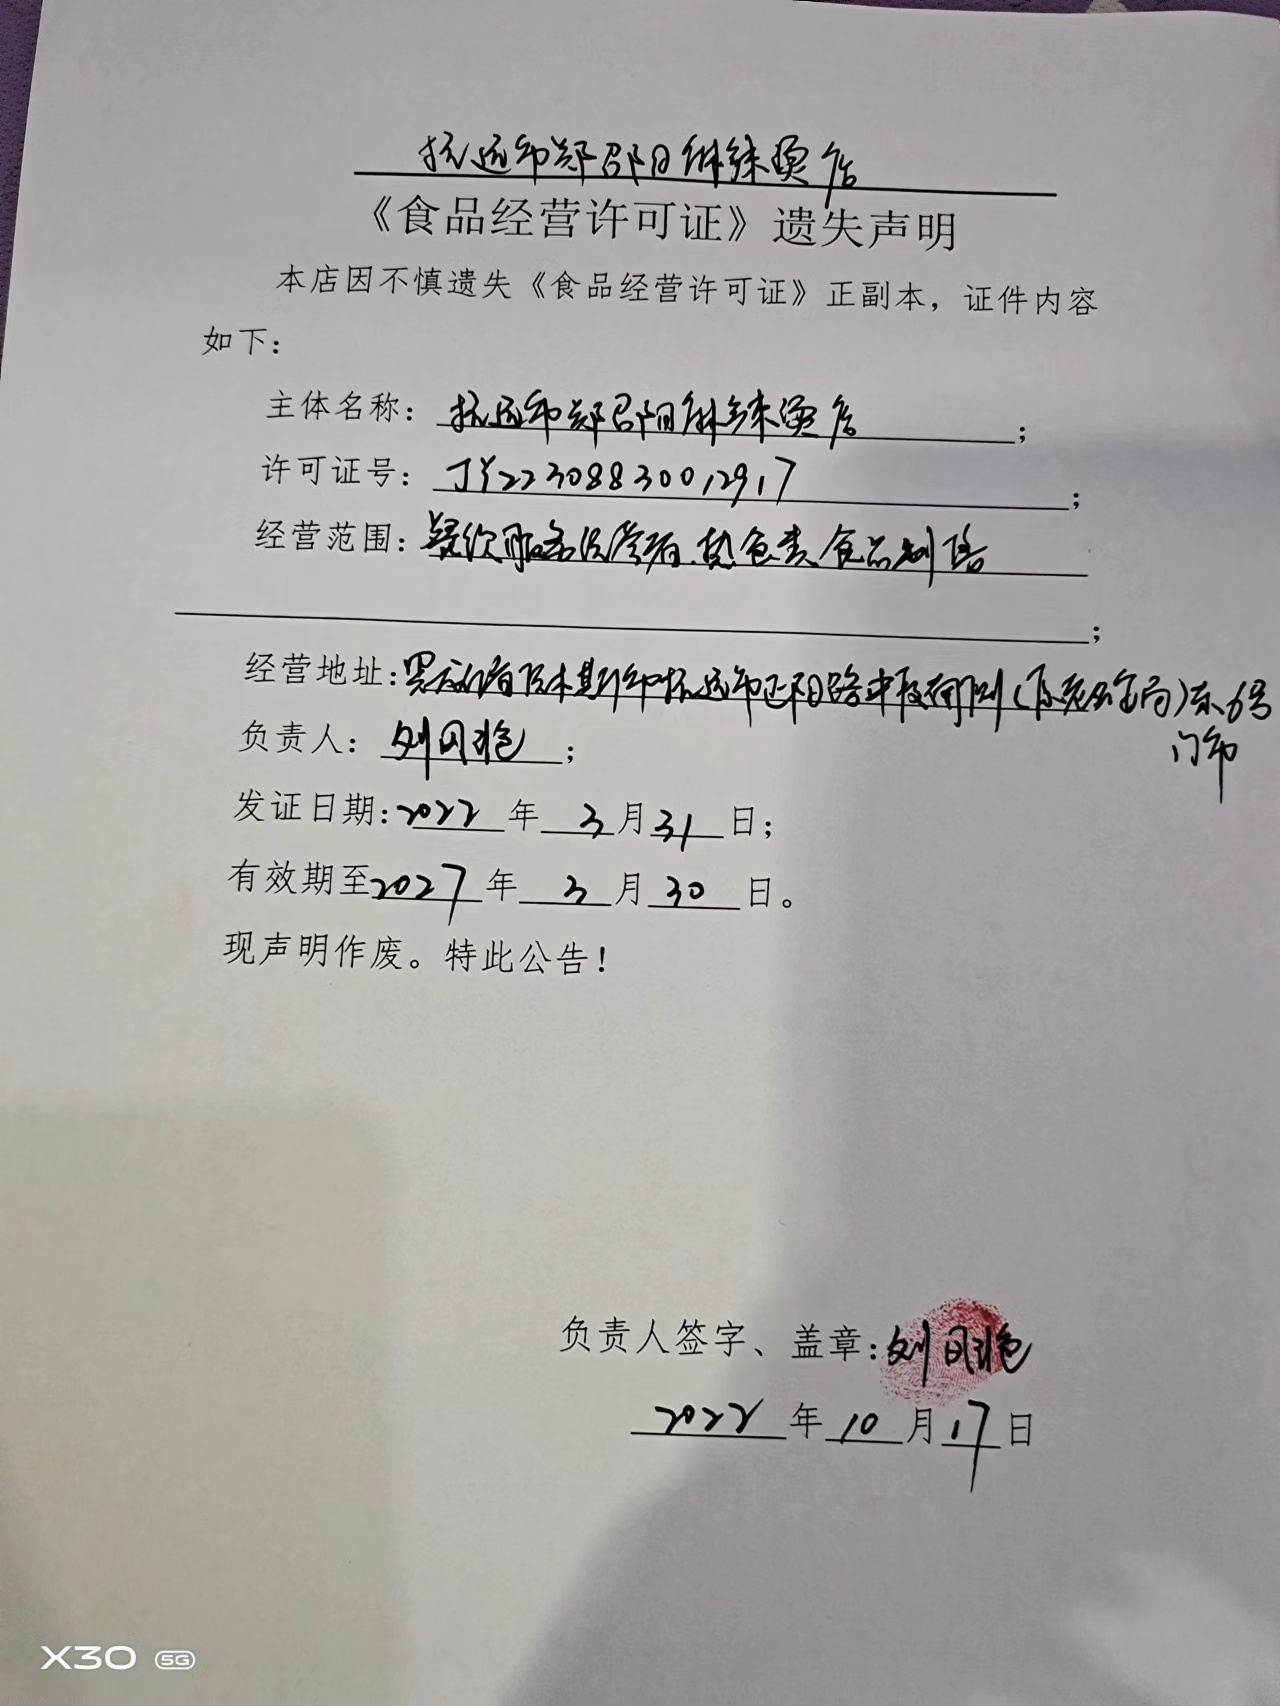 抚远市郑邵阳麻辣烫店
《食品经营许可证》遗失声明
本店因不慎遗失《食品经营许可证》正副本，证件内容
如下：
主体名称：抚远市郑邵阳麻辣烫店；
许可证号：JY22308830012917；
经营范围：餐饮服务经营者、热食类食品制售
；
经营地址：黑龙江省佳木斯市抚远市正阳路中段南侧（原）东6号
门市
负责人：刘；
发证日期：2022年3月31日；
有效期至2027年3月30日。
现声明作废。特此公告！
负责人签字、盖章：刘
2022年10月17日
X30 5G